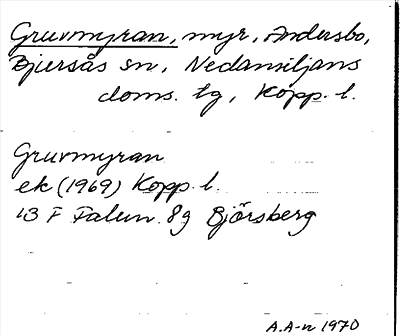 Gruvmyran, myr, Andersbo,
Bjursås sn, Nedansiljans
doms. tg, Kopp. l.
Gruvmyran
ek (1969) Kopp. l.
13 F Falun. 8g Björsberg
A.A-n 1970